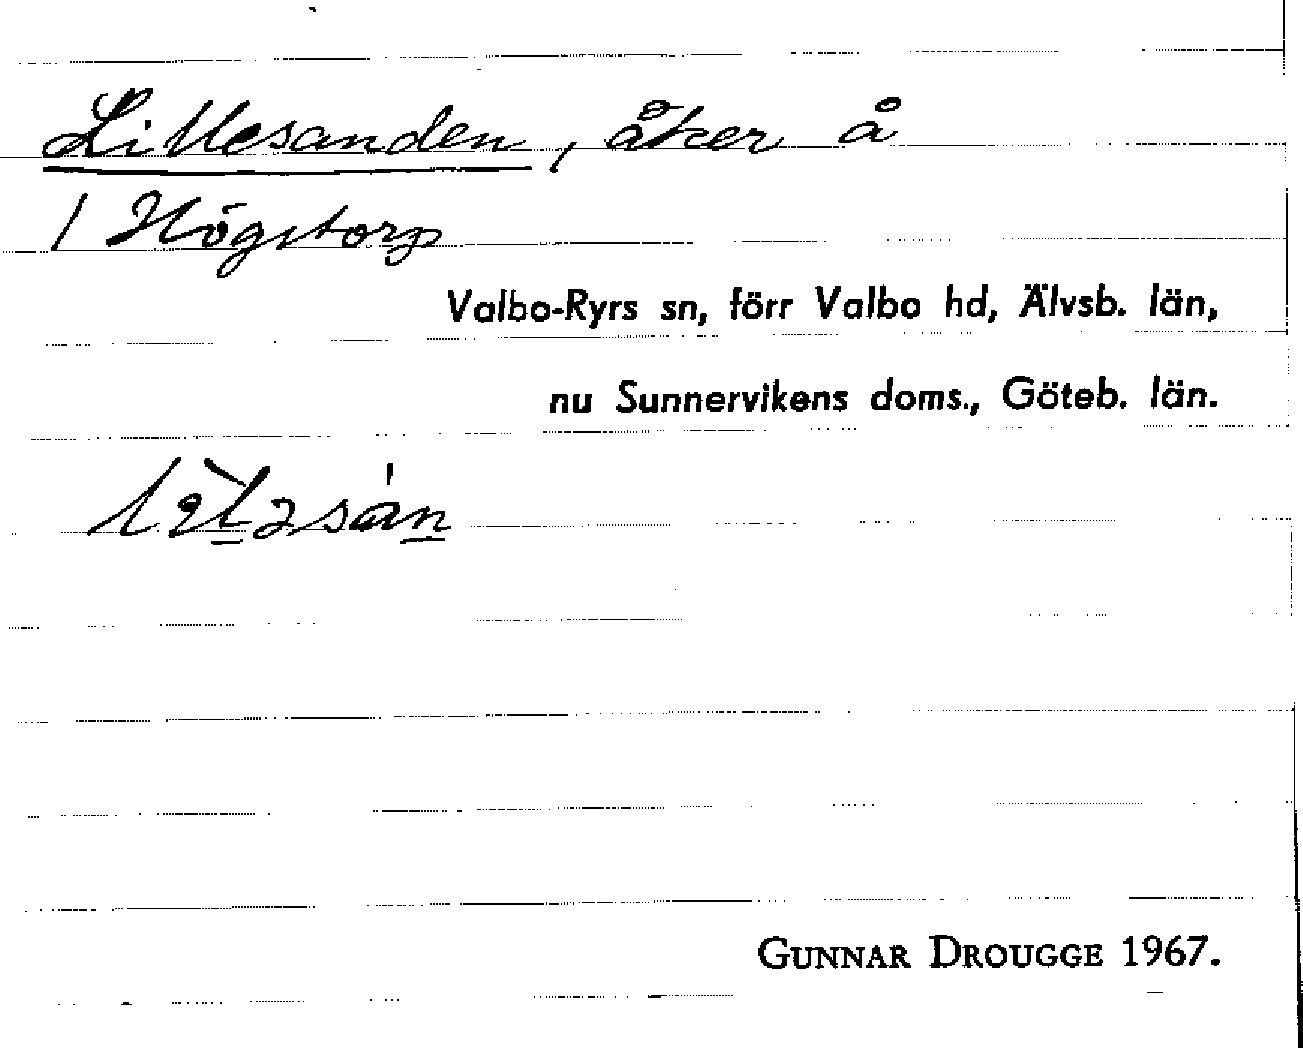 Lillesanden, åker å
1 Högstorp
Valbo-Ryrs sn, förr Valbo hd, Älvsb. län,
nu Sunnervikens doms., Göteb. län.
GUNNAR DROUGGE 1967.